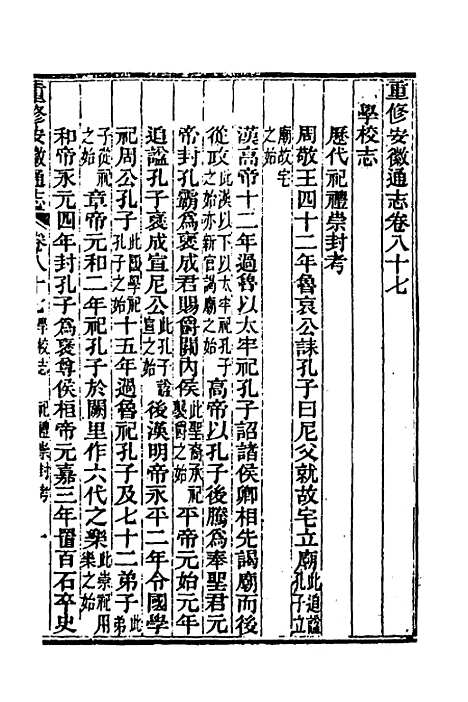 重修安徽通志卷八十七
學校志
歷代祀禮崇封考
周敬王四十二年魯哀公誄孔子曰尼父就故宅立廟此追謚孔子立
廟故宅之始
漢高帝十二年過魯以太牢祀孔子詔諸侯卿相先謁廟而後
從政此漢以下以太牢祀孔子之始亦新官謁廟之始高帝以孔子後騰爲奉聖君元
帝封孔霸爲褒成君賜爵關內侯此聖裔承祀襲爵之始平帝元始元年
追謚孔子褒成宣尼公此孔子謚宣之始後漢明帝永平二年令國學
祀周公孔子此國學祀孔子之始十五年過魯祀孔子及七十二弟子此弟
子從祀之始章帝元和二年祀孔子於闕里作六代之樂此崇祀用樂之始
和帝永元四年封孔子爲褒尊侯桓帝元嘉三年置百石卒史
重修安徽通志 卷八十七 學校志 祀禮崇封考 一